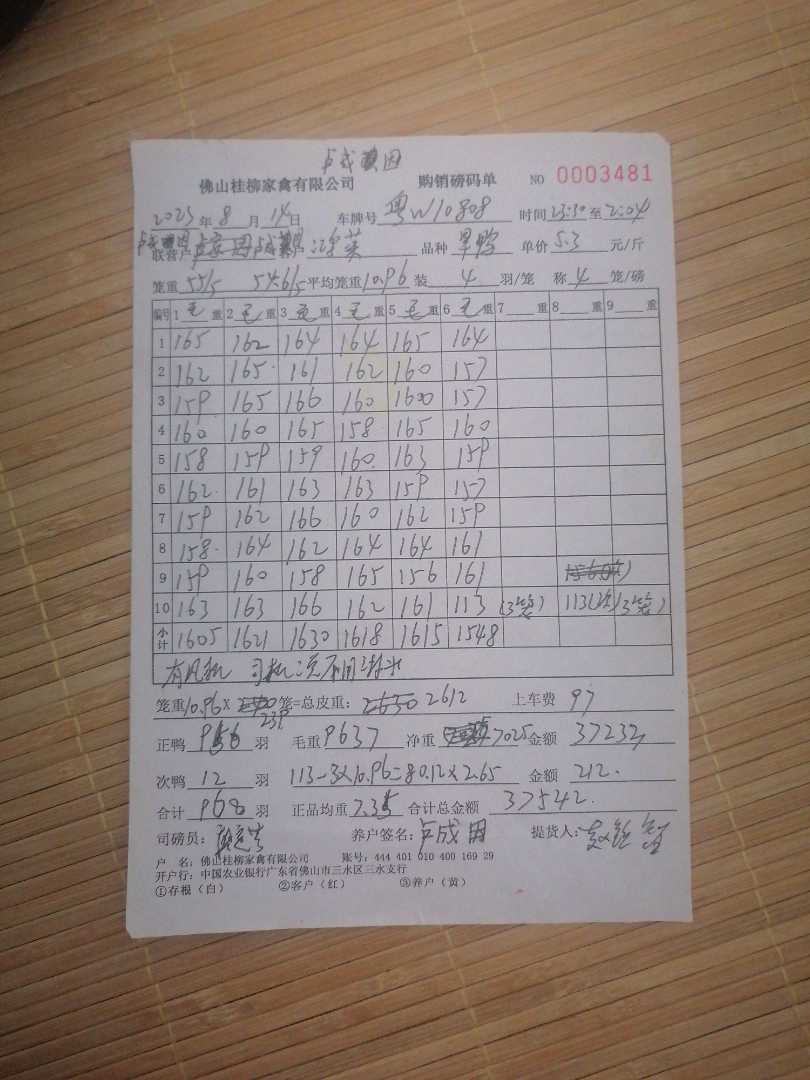 卢成田
佛山桂柳家禽有限公司 购销磅码单 NO 0003481
2023年8月14日 车牌号 粤W10808 时间23:30至2:04
联营户 品种 旱鸭 单价5.3元/斤
笼重55/5 54.6/5平均笼重10.96装4羽/笼 称4笼/磅
编号 1毛重 2毛重 3毛重 4毛重 5毛重 6毛重 7重 8重 9重
1 165 162 164 164 165 164
2 162 165 161 162 160 157
3 159 165 166 160 1600 157
4 160 160 165 158 165 160
5 158 159 159 160 163 159
6 162 161 163 163 159 157
7 159 162 166 160 162 159
8 158 164 162 164 164 161
9 159 160 158 165 156 161
10 163 163 166 162 161 113 (3笼) 113(次)(3笼)
小计 1605 1621 1630 1618 1615 1548
笼重10.96X 239笼=总皮重:2630 2612 上车费 97
正鸭 956 羽 毛重9637 净重 7025金额 37232
次鸭 12 羽 113-3X10.96=80.12X2.65 金额 212.
合计 968 羽 正品均重7.35 合计总金额 37542.
司磅员: 养户签名:卢成田 提货人:
户 名:佛山桂柳家禽有限公司 账号:444 401 010 400 169 29
开户行:中国农业银行广东省佛山市三水区三水支行
①存根(白) ②客户(红) ③养户(黄)